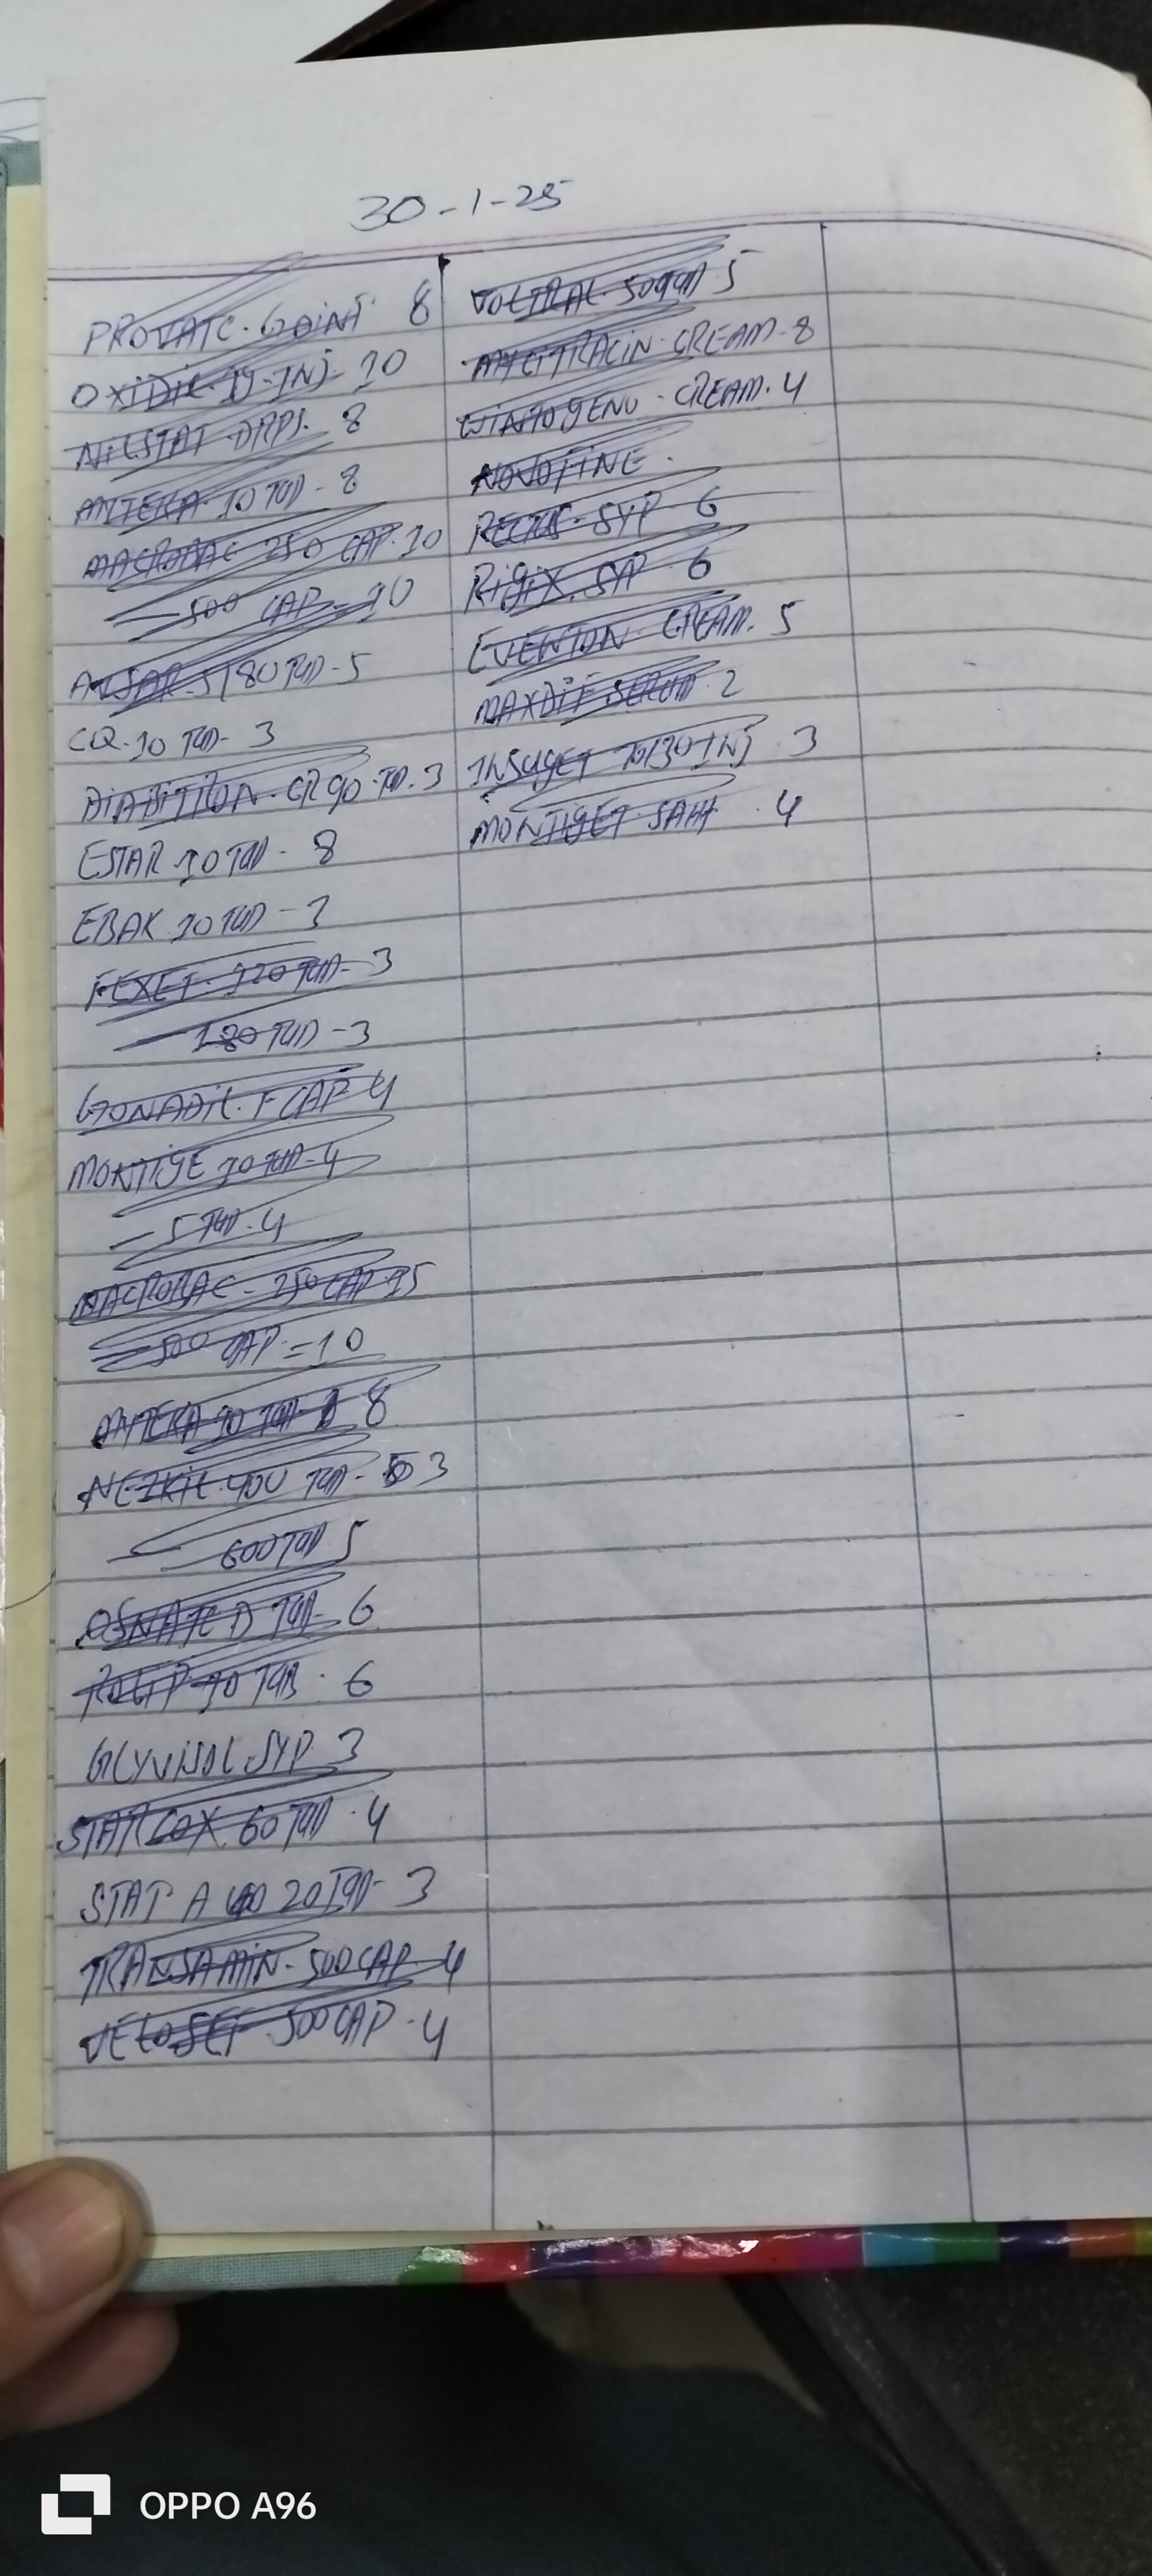 30-1-25
PROVATE. GOINT 8
OXIDIL. IJ-INJ- 10
NILSTAT DRPS. 8
MYTEKA. 10 TAB - 8
MACROBAC 250 CAP. 10
— 500 CAP - 10
5/80 TAB - 5
CQ. 10 TAB - 3
DIABITRON. CR 90. TAB. 3
ESTAR 10 TAB - 8
EBAK 10 TAB - 3
FEXET. 120 TAB - 3
— 180 TAB - 3
GONADIL. F CAP 4
MONTIGE 10 TAB - 4
— 5 TAB. 4
MACROBAC - 250 CAP 15
— 500 CAP = 10
MYTEKA 10 TAB 8
NEZKIL 400 TAB - 3
— 600 TAB 5
OSNATE D TAB - 6
10 TAB. 6
SYP. 3
STARCOX. 60 TAB. 4
STAT A 20 TAB - 3
TRANSAMIN - 500 CAP 4
VELOSEF 500 CAP - 4
VOLTRAL. 50 TAB 5
CREAM - 8
WINTOGENO - CREAM. 4
NOVOFINE.
SYP 6
RIGIX. SAP 6
CREAM. 5
MAXDIF SERUM 2
INSUGET 70/30 INJ. 3
MONTIGET SAHH. 4
OPPO A96